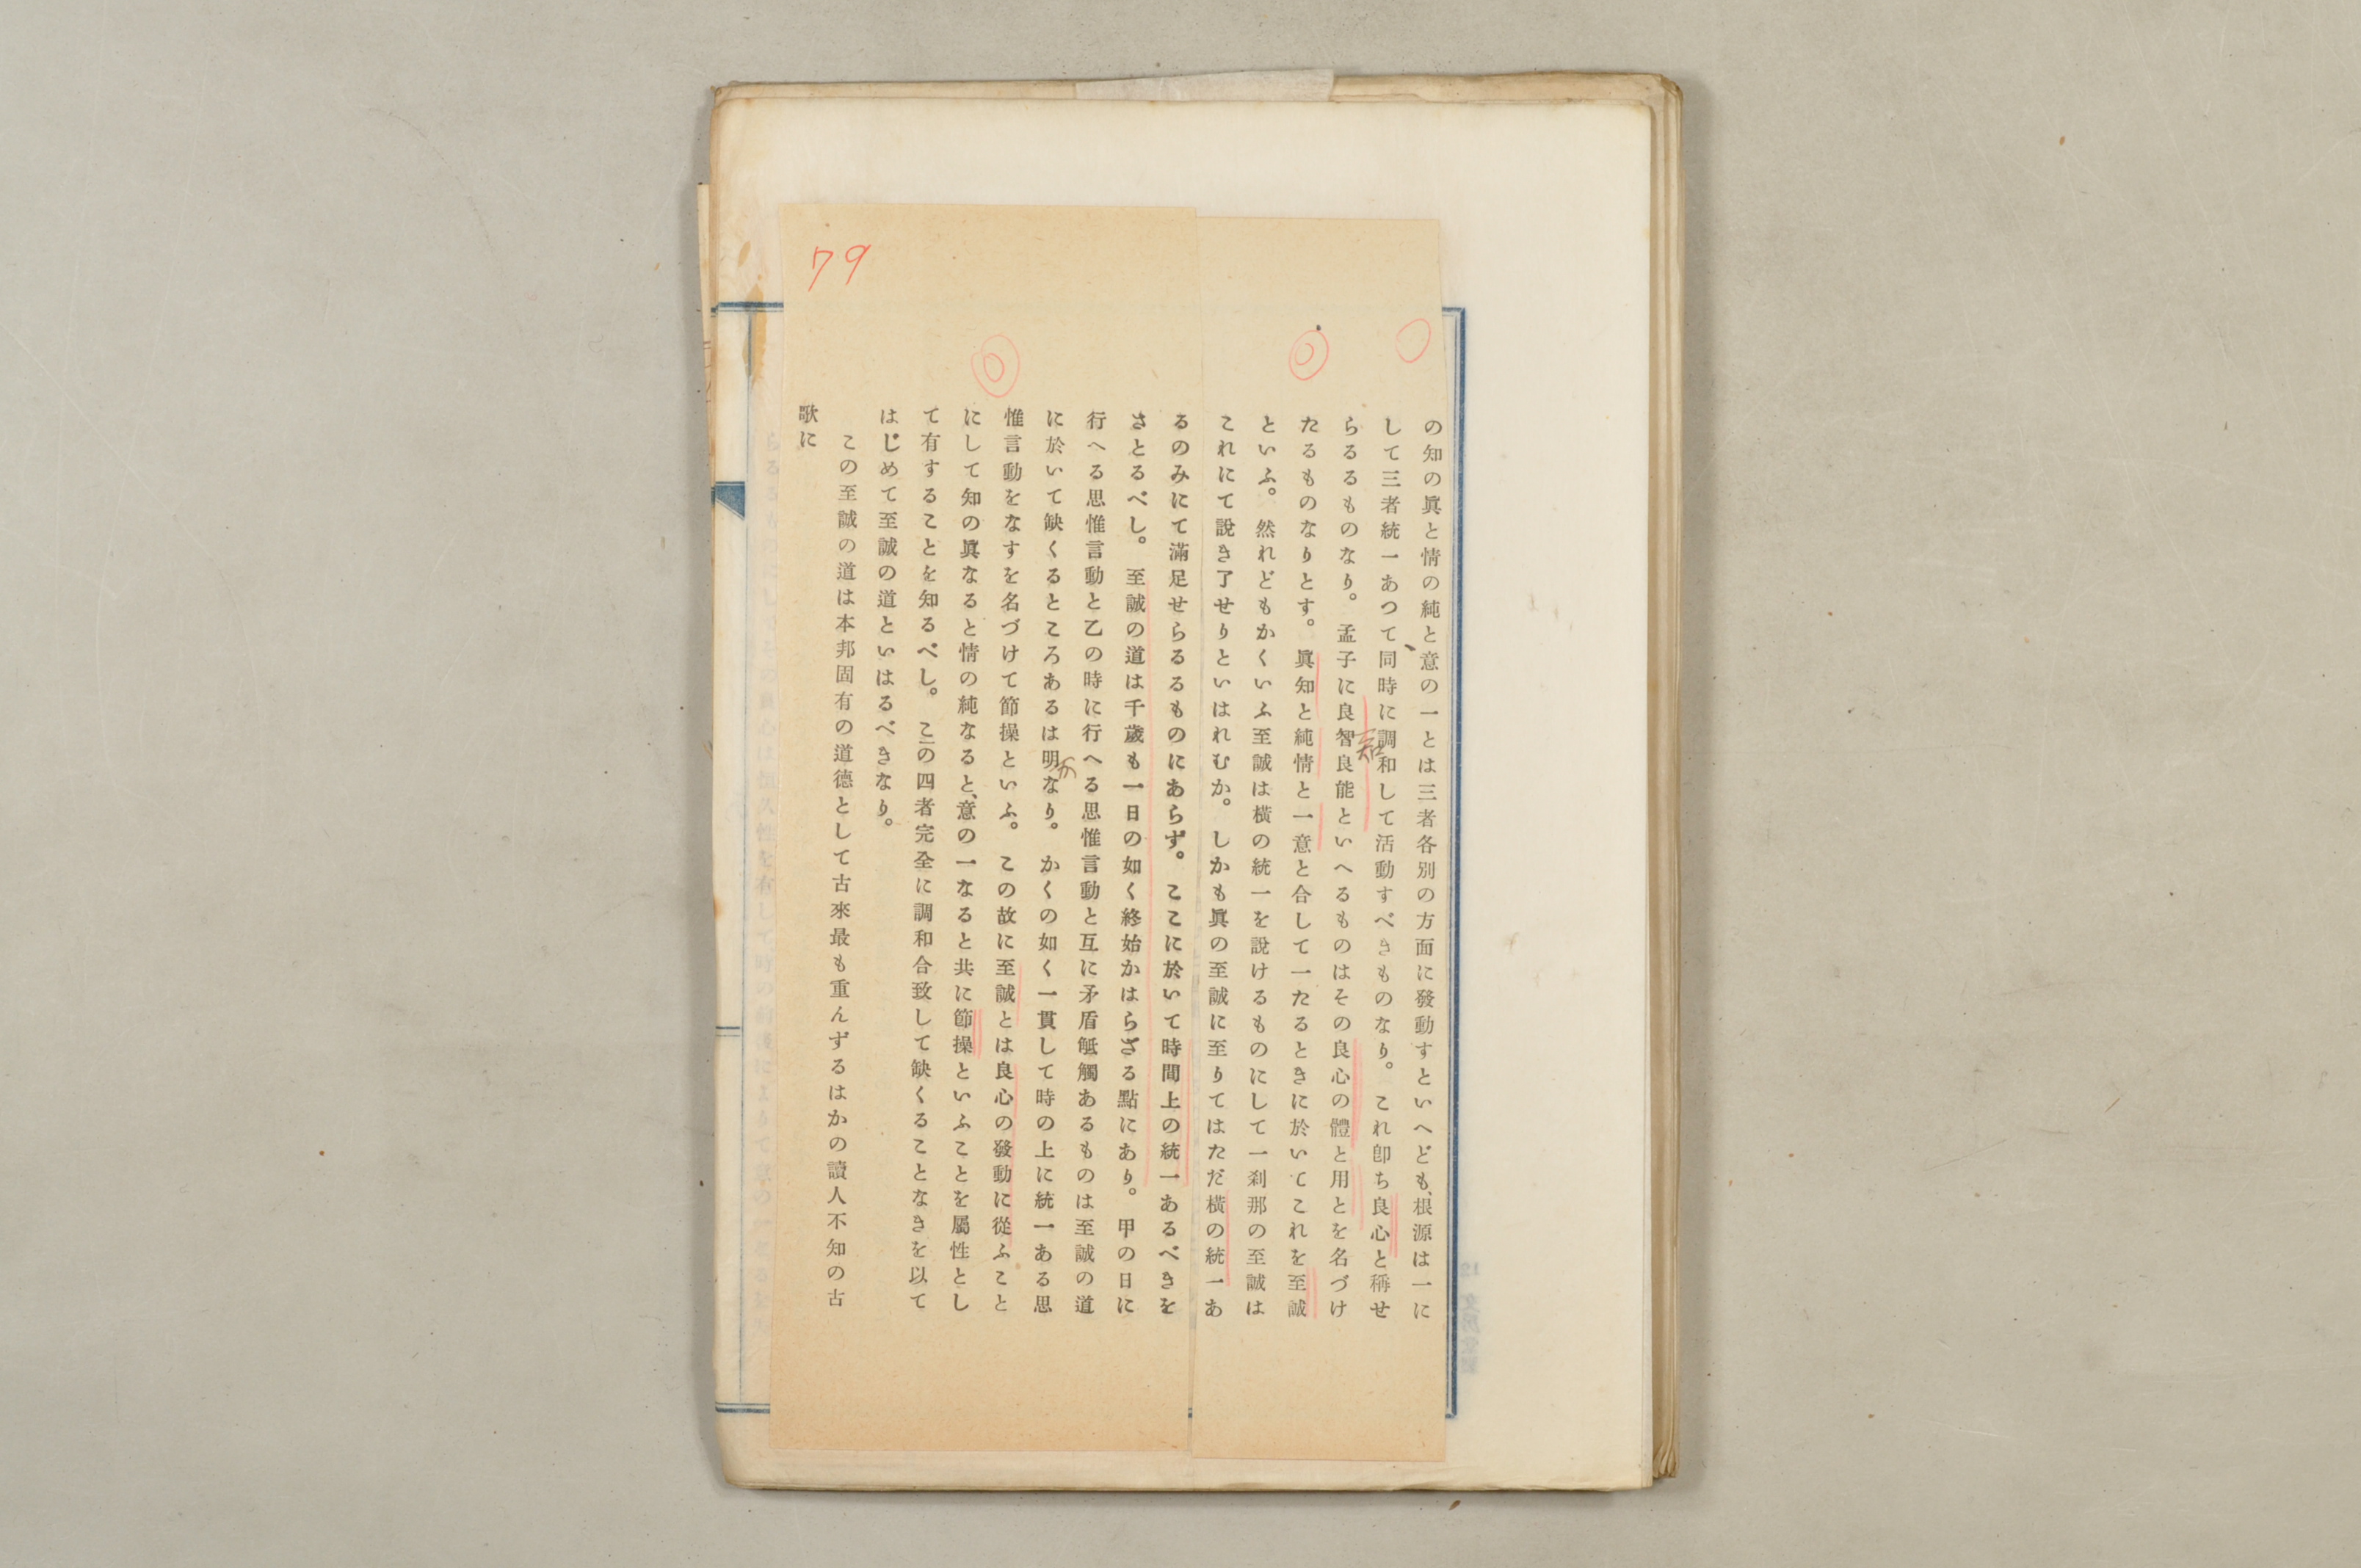 79
の知の眞と情の純と意の一とは三者各別の方面に發動すといへども、根源は一に
して三者統一あつて同時に調和して活動すべきものなり。これ卽ち良心と稱せ
らるるものなり。孟子に良智良能といへるものはその良心の體と用とを名づけ
知
たるものなりとす。眞知と純情と一意と合して一たるときに於いてこれを至誠
といふ。然れどもかくいふ至誠は橫の統一を說けるものにして一刹那の至誠は
これにて說き了せりといはれむか。しかも眞の至誠に至りてはただ橫の統一あ
るのみにて滿足せらるるものにあらず。ここに於いて時間上の統一あるべきを
さとるべし。至誠の道は千歲も一日の如く終始かはらざる點にあり。甲の日に
行へる思惟言動と乙の時に行へる思惟言動と互に矛盾觝觸あるものは至誠の道
に於いて缺くるところあるは明なり。かくの如く一貫して時の上に統一ある思
か
惟言動をなすを名づけて節操といふ。この故に至誠とは良心の發動に從ふこと
にして知の眞なると情の純なると、意の一なると共に節操といふことを屬性とし
て有することを知るべし。この四者完全に調和合致して缺くることなきを以て
はじめて至誠の道といはるべきなり。
この至誠の道は本邦固有の道德として古來最も重んずるはかの讀人不知の古
歌に